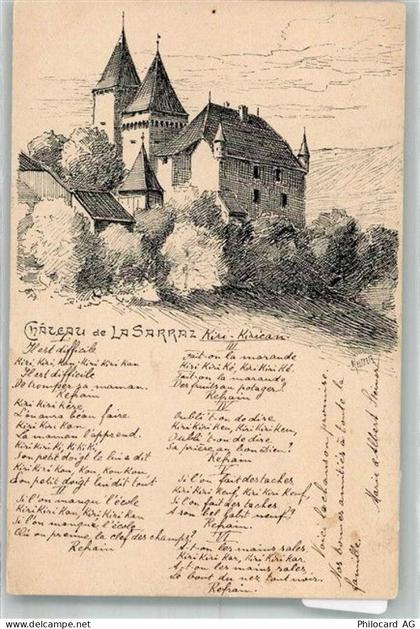 CHÂTEAU de LA SARRAZ Kiri-Kirican
Il est difficile
Kiri Kiri Kan, Kiri Kiri Kan
Il est difficile
De tromper sa maman.
Refrain
Kiri Kiri Kère,
L'on aura beau faire
Kiri Kiri Kan.
La maman l'apprend.
Kiri Kiri Ki, Ki Ki Ki,
Son petit doigt le lui a dit
Kiri Kiri Kan, Kan, Kan Kan
Son petit doigt lui dit tout
II
Si l'on manque l'école
Kiri Kiri Kan, Kiri Kiri Kan
Si l'on manque l'école
Ou on prenne la clef des champs?
Refrain
III
Fait-on la maraude
Kiri Kiri Kô, Kiri Kiri Kô.
Fait-on la maraude
Des fruits au potager?
Refrain
IV
Oublit-on de dire
Kiri Kiri Ken, Kiri Kiri Ken,
Oublit-on de dire
Sa prière au bon Dieu?
Refrain
V
Si l'on fait des taches
Kiri Kiri Keuf, Kiri Kiri Keuf,
Si l'on fait des taches
A son bel habit neuf?
Refrain.
VI
A-t-on les mains sales,
Kiri Kiri Kar, Kiri Kiri Kar,
A-t-on les mains sales,
Le bout du nez tout noir.
Refrain.
Voici la chanson promise.
Nos bonnes amitiés à toute la
famille.
Marie d'Albert
philocard.de / Philocard AG